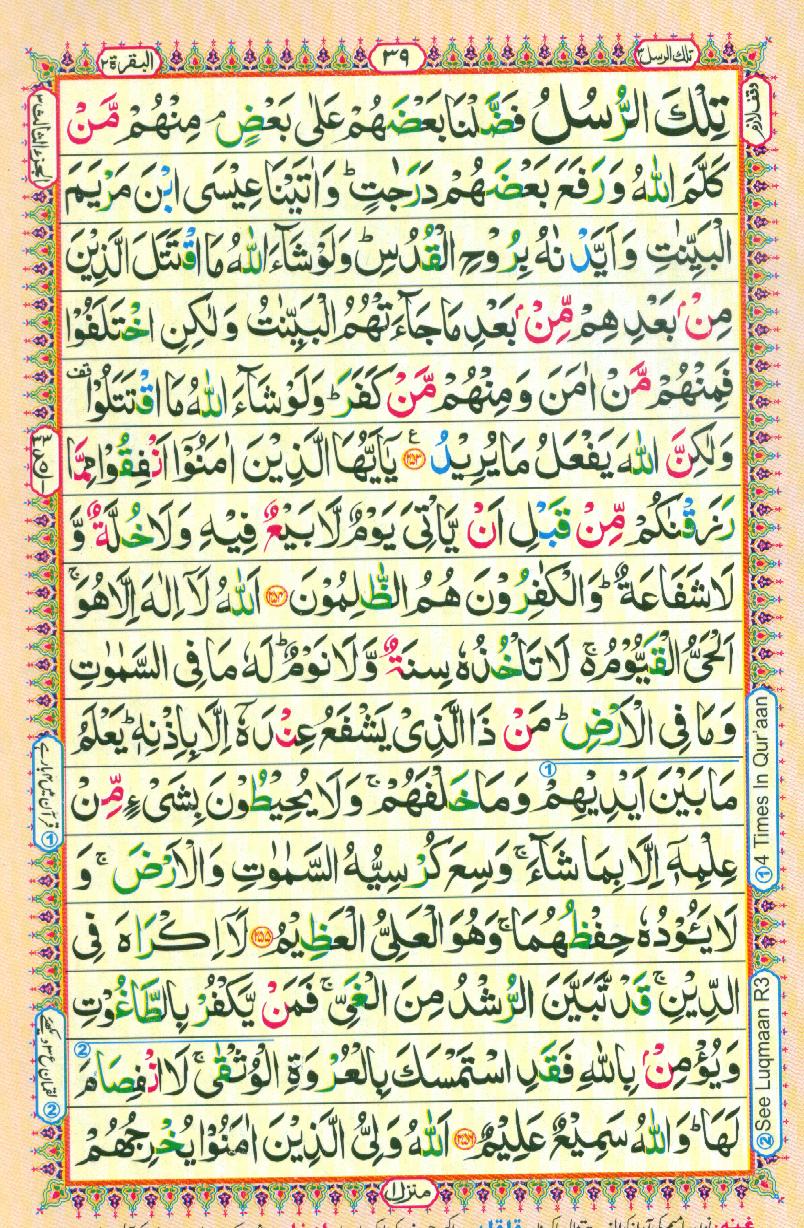 تلك الرسل ٣
٣٩
البقرة ٢
وقف لازم
الجزء الثالث ٣
تِلْكَ الرُّسُلُ فَضَّلْنَا بَعْضَهُمْ عَلٰى بَعْضٍ ۘ مِنْهُمْ مَّنْ
كَلَّمَ اللّٰهُ وَرَفَعَ بَعْضَهُمْ دَرَجٰتٍ ؕ وَاٰتَيْنَا عِيْسَى ابْنَ مَرْيَمَ
الْبَيِّنٰتِ وَاَيَّدْنٰهُ بِرُوْحِ الْقُدُسِ ؕ وَلَوْ شَآءَ اللّٰهُ مَا اقْتَتَلَ الَّذِيْنَ
مِنْۢ بَعْدِهِمْ مِّنْۢ بَعْدِ مَا جَآءَتْهُمُ الْبَيِّنٰتُ وَلٰكِنِ اخْتَلَفُوْا
فَمِنْهُمْ مَّنْ اٰمَنَ وَمِنْهُمْ مَّنْ كَفَرَ ؕ وَلَوْ شَآءَ اللّٰهُ مَا اقْتَتَلُوْا قف
وَلٰكِنَّ اللّٰهَ يَفْعَلُ مَا يُرِيْدُ ﴿۲۵۳﴾ ع يٰۤاَيُّهَا الَّذِيْنَ اٰمَنُوْۤا اَنْفِقُوْا مِمَّا
رَزَقْنٰكُمْ مِّنْ قَبْلِ اَنْ يَّاْتِىَ يَوْمٌ لَّا بَيْعٌ فِيْهِ وَلَا خُلَّةٌ وَّ
لَا شَفَاعَةٌ ؕ وَالْكٰفِرُوْنَ هُمُ الظّٰلِمُوْنَ ﴿۲۵۴﴾ اَللّٰهُ لَاۤ اِلٰهَ اِلَّا هُوَ ۚ
اَلْحَىُّ الْقَيُّوْمُ ۚ۬ لَا تَاْخُذُهٗ سِنَةٌ وَّلَا نَوْمٌ ؕ لَهٗ مَا فِى السَّمٰوٰتِ
وَمَا فِى الْاَرْضِ ؕ مَنْ ذَا الَّذِىْ يَشْفَعُ عِنْدَهٗۤ اِلَّا بِاِذْنِهٖ ؕ يَعْلَمُ
مَا بَيْنَ اَيْدِيْهِمْ وَمَا خَلْفَهُمْ ۚ وَلَا يُحِيْطُوْنَ بِشَىْءٍ مِّنْ
عِلْمِهٖۤ اِلَّا بِمَا شَآءَ ۚ وَسِعَ كُرْسِيُّهُ السَّمٰوٰتِ وَالْاَرْضَ ۚ وَ
لَا يَـُٔوْدُهٗ حِفْظُهُمَا ۚ وَهُوَ الْعَلِىُّ الْعَظِيْمُ ﴿۲۵۵﴾ لَاۤ اِكْرَاهَ فِى
الدِّيْنِ ۚ قَدْ تَّبَيَّنَ الرُّشْدُ مِنَ الْغَىِّ ۚ فَمَنْ يَّكْفُرْ بِالطَّاغُوْتِ
وَيُؤْمِنْۢ بِاللّٰهِ فَقَدِ اسْتَمْسَكَ بِالْعُرْوَةِ الْوُثْقٰى ۚ لَا انْفِصَامَ
لَهَا ؕ وَاللّٰهُ سَمِيْعٌ عَلِيْمٌ ﴿۲۵۶﴾ اَللّٰهُ وَلِىُّ الَّذِيْنَ اٰمَنُوْا يُخْرِجُهُمْ
① 4 Times In Qur'aan
② See Luqmaan R3
① قرآن میں ۴ بار ہے
② لقمان ع ۳ دیکھئے
①
②
منزل ١